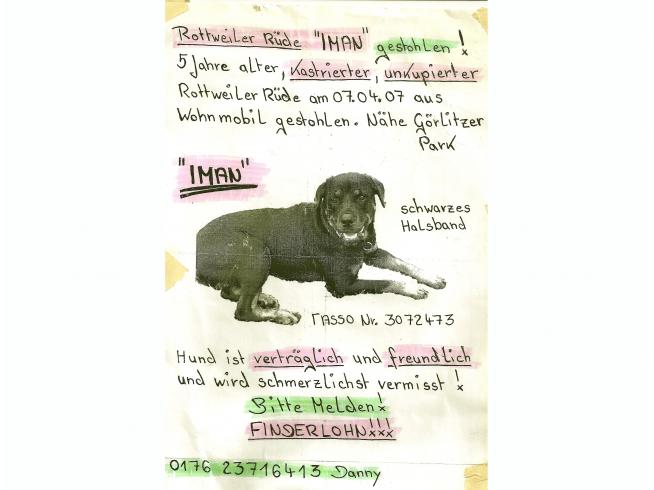 Rottweiler Rüde "IMAN" gestohlen!
5 Jahre alter, kastrierter, unkupierter
Rottweiler Rüde am 07.04.07 aus
Wohnmobil gestohlen. Nähe Görlitzer
Park
"IMAN"
schwarzes
Halsband
TASSO Nr. 3072473
Hund ist verträglich und freundlich
und wird schmerzlichst vermisst!
Bitte Melden!
FINDERLOHN!!!
0176 23716413 Danny